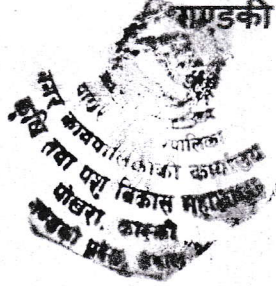 गण्डकी
नगर कार्यपालिकाको कार्यालय
कृषि तथा पशु विकास महाशाखा
पोखरा, कास्की
गण्डकी प्रदेश नेपाल